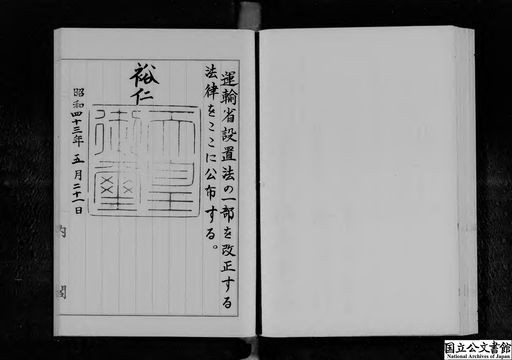 運輸省設置法の一部を改正する
法律をここに公布する。
裕仁
天皇
御璽
昭和四十三年五月二十一日
内閣
国立公文書館
National Archives of Japan